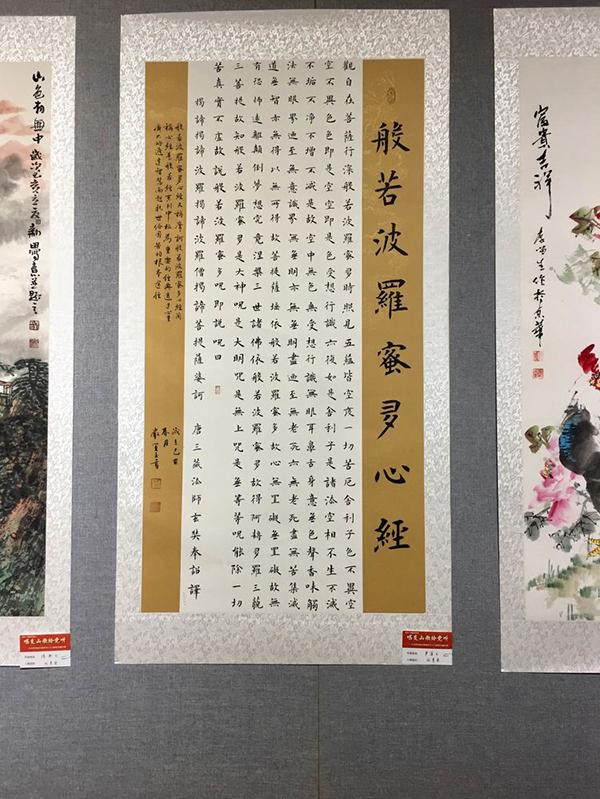 富貴吉祥
作於京華
般若波羅蜜多心經
觀自在菩薩行深般若波羅蜜多時照見五蘊皆空度一切苦厄舍利子色不異空
空不異色色即是空空即是色受想行識亦復如是舍利子是諸法空相不生不滅
不垢不淨不增不減是故空中無色無受想行識無眼耳鼻舌身意無色聲香味觸
法無眼界乃至無意識界無無明亦無無明盡乃至無老死亦無老死盡無苦集滅
道無智亦無得以無所得故菩提薩埵依般若波羅蜜多故心無罣礙無罣礙故無
有恐怖遠離顛倒夢想究竟涅槃三世諸佛依般若波羅蜜多故得阿耨多羅三藐
三菩提故知般若波羅蜜多是大神咒是大明咒是無上咒是無等等咒能除一切
苦真實不虛故說般若波羅蜜多咒即說咒曰
揭諦揭諦波羅揭諦波羅僧揭諦菩提薩婆訶 唐三藏法師玄奘奉詔譯
般若波羅蜜多心經又稱摩訶般若波羅蜜多心經簡
稱心經是般若經系列中
歲在己亥
春月
山色有無中 歲次己亥之夏
唱支山歌给党听
唱支山歌给党听